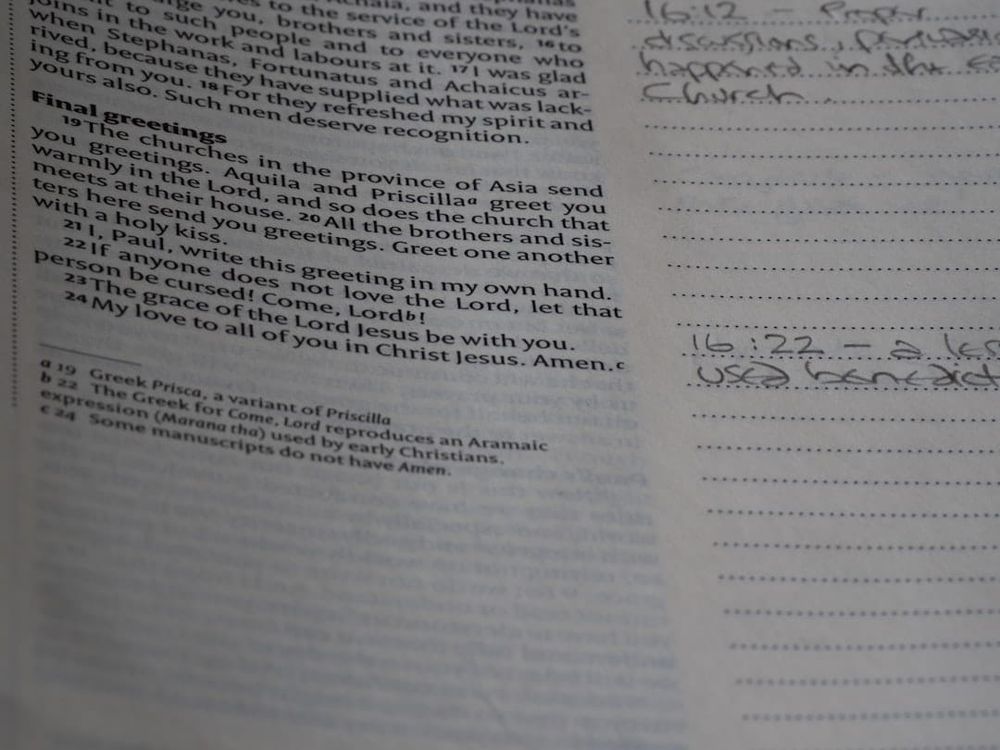 to the service of the Lord's
you, brothers and sisters, 16 to
to such people and to everyone who
joins in the work and labours at it. 17 I was glad
when Stephanas, Fortunatus and Achaicus ar-
rived, because they have supplied what was lack-
ing from you. 18 For they refreshed my spirit and
yours also. Such men deserve recognition.
Final greetings
19 The churches in the province of Asia send
you greetings. Aquila and Priscilla a greet you
warmly in the Lord, and so does the church that
meets at their house. 20 All the brothers and sis-
ters here send you greetings. Greet one another
with a holy kiss.
21 I, Paul, write this greeting in my own hand.
22 If anyone does not love the Lord, let that
person be cursed! Come, Lord b!
23 The grace of the Lord Jesus be with you.
24 My love to all of you in Christ Jesus. Amen. c
a 19 Greek Prisca, a variant of Priscilla
b 22 The Greek for Come, Lord reproduces an Aramaic
expression (Marana tha) used by early Christians.
c 24 Some manuscripts do not have Amen.
16:12 -
discussions,
happened in the
Church.
16:22 - a
used